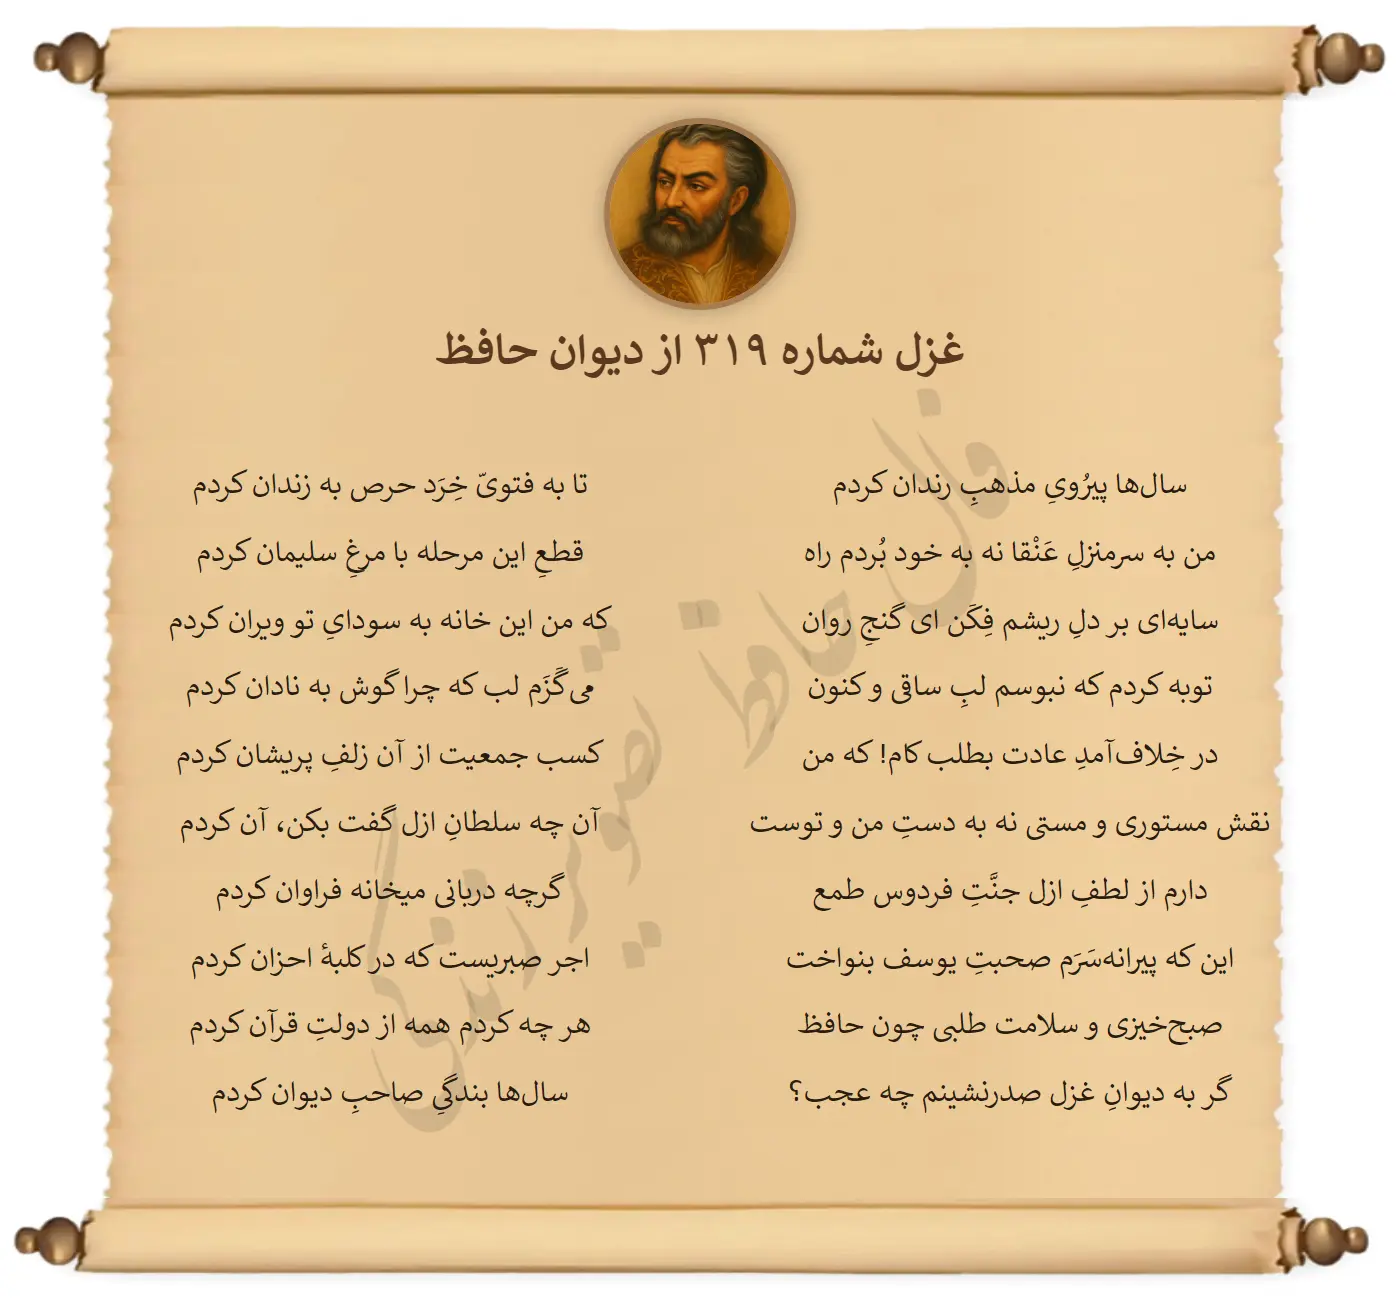 غزل شماره ۳۱۹ از دیوان حافظ
سال‌ها پیرُویِ مذهبِ رندان کردم
تا به فتویّ خِرَد حرص به زندان کردم
من به سرمنزلِ عَنْقا نه به خود بُردم راه
قطعِ این مرحله با مرغِ سلیمان کردم
سایه‌ای بر دلِ ریشم فِکَن ای گنجِ روان
که من این خانه به سودایِ تو ویران کردم
توبه کردم که نبوسم لبِ ساقی و کنون
می‌گَزَم لب که چرا گوش به نادان کردم
در خِلاف‌آمدِ عادت بطلب کام! که من
کسب جمعیت از آن زلفِ پریشان کردم
نقش مستوری و مستی نه به دستِ من و توست
آن چه سلطانِ ازل گفت بکن، آن کردم
دارم از لطفِ ازل جنَّتِ فردوس طمع
گرچه دربانی میخانه فراوان کردم
این که پیرانه‌سَرَم صحبتِ یوسف بنواخت
اجر صبریست که در کلبهٔ احزان کردم
صبح‌خیزی و سلامت طلبی چون حافظ
هر چه کردم همه از دولتِ قرآن کردم
گر به دیوانِ غزل صدرنشینم چه عجب؟
سال‌ها بندگیِ صاحبِ دیوان کردم
فال حافظ تصویر زندگی